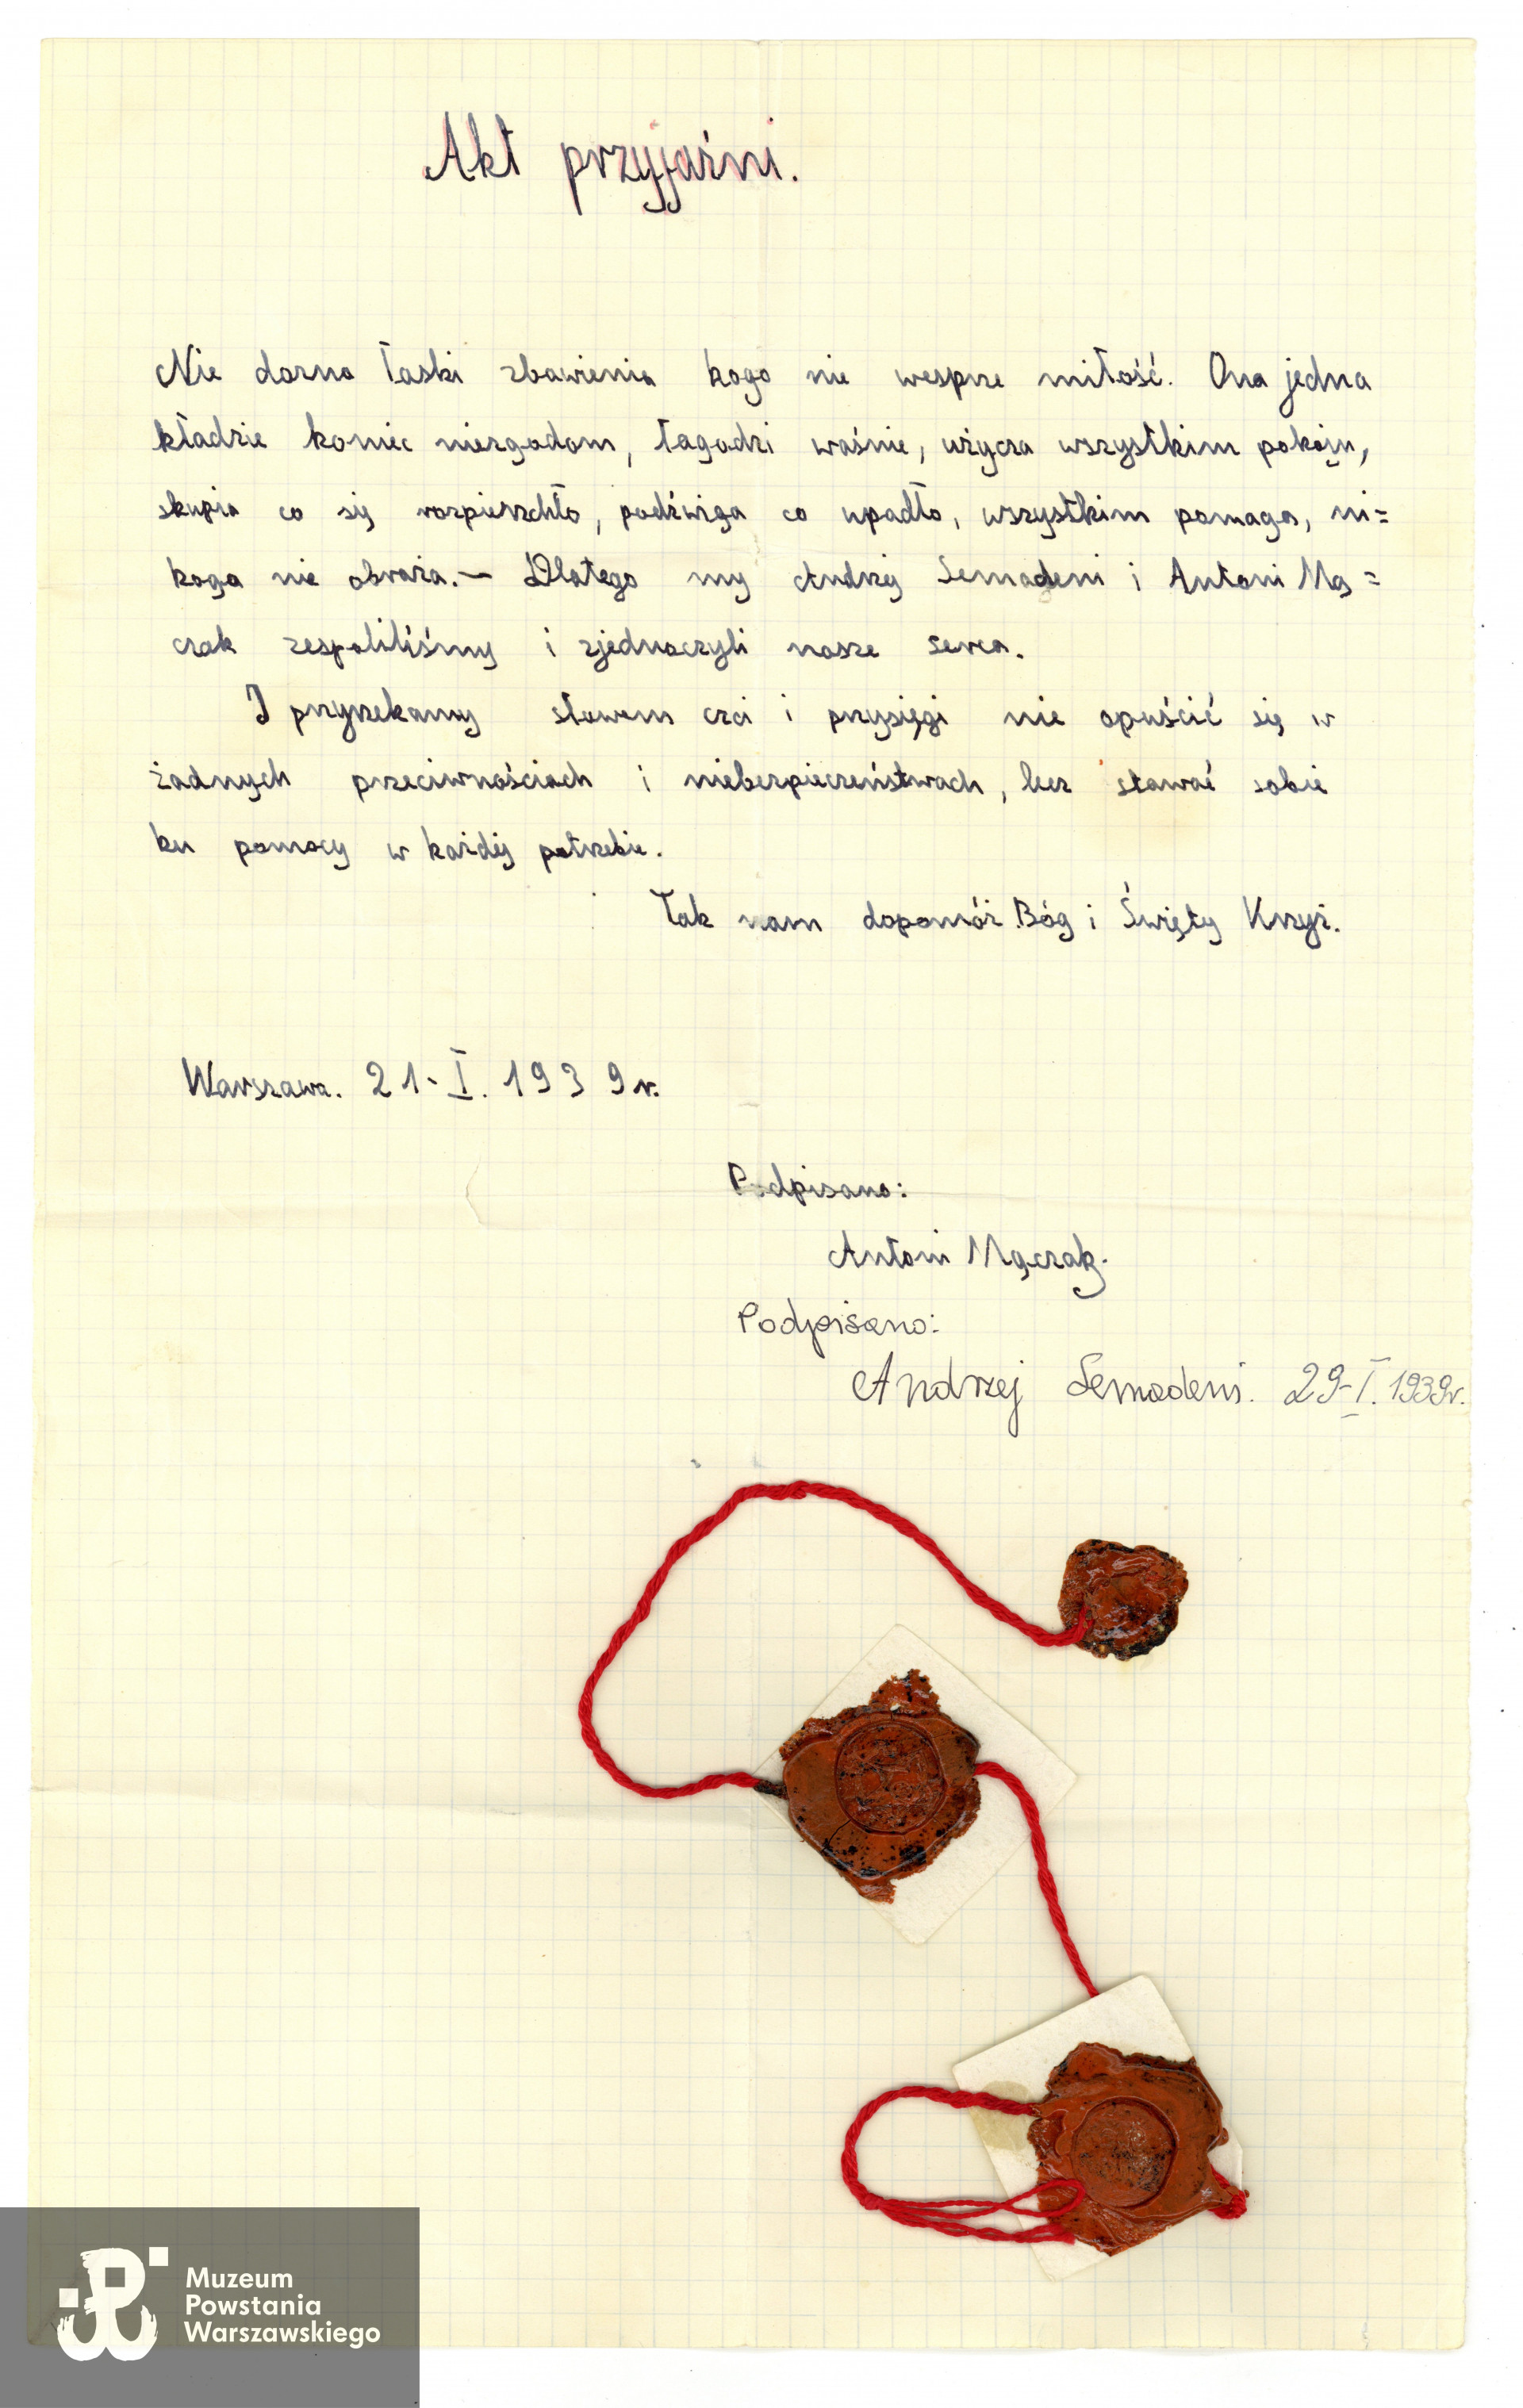 Akt przyjaźni.
Nie dozna łaski zbawienia kogo nie wesprze miłość. Ona jedna
kładzie koniec niezgodom, łagodzi waśnie, użycza wszystkim pokoju,
skupia co się rozpierzchło, podźwiga co upadło, wszystkim pomaga, ni=
kogo nie obraża. — Dlatego my Andrzej Semadeni i Antoni Mą=
czak zespoliliśmy i zjednoczyli nasze serca.
I przyrzekamy słowem czci i przysięgi nie opuścić się w
żadnych przeciwnościach i niebezpieczeństwach, lecz stawać sobie
ku pomocy w każdej potrzebie.
Tak nam dopomóż Bóg i Święty Krzyż.
Warszawa. 21-I. 1939r.
Podpisano:
Antoni Mączak.
Podpisano:
Andrzej Semadeni. 29-I. 1939r.
Muzeum
Powstania
Warszawskiego